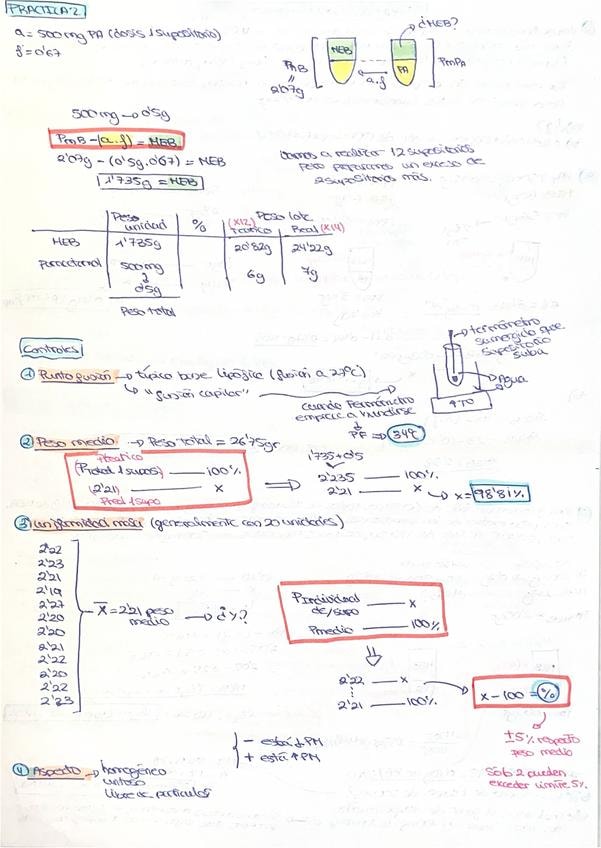 PRACTICA 2
a = 500 mg PA (dosis 1 supositorio)
f = 0'67
PmB
"
2'07g
MEB
a.f
PA
¿MEB?
PmPA
500mg → 0'5g
PmB - (a.f) = MEB
2'07g - (0'5g.0'67) = MEB
1'735g = MEB
Vamos a realizar 12 supositorios
pero preparamos un exceso de
2 supositorios más.
Peso unidad % Peso lote
(X12) Teórico Real (X14)
MEB 1'735g 20'82g 24'22g
Paracetamol 500mg 6g 7g
0'5g
Peso total
Controles
① Punto fusión → típico base lipófila (fusión a 27ºC)
↳ "fusión capilar" → cuando termómetro
empiece a hundirse
↓
PF ⇒ 34ºC
→ termómetro
sumergido que
supositorio
suba
→ Agua
② Peso medio → Peso total = 26'75gr
Pteórico
(Ptotal 1 supos) — 100%
(2'21) — x
Preal 1 supo
⇒
1'735+0'5
2'235 — 100%
2'21 — x ↳ x = 98'81%
③ Uniformidad masa (generalmente con 20 unidades)
2'22
2'23
2'21
2'19
2'27
2'20
2'20
2'21
2'22
2'20
2'22
2'23
x̄ = 2'21 peso
medio → ¿%?
Pindividual
de/supo — x
Pmedio — 100%
2'22 — x
2'21 — 100%
x - 100 = %
±5% respecto
peso medio
Sólo 2 pueden
exceder límite 5%.
- está ↓ PM
+ está ↑ PM
④ Aspecto → homogéneo
untoso
libre de partículas